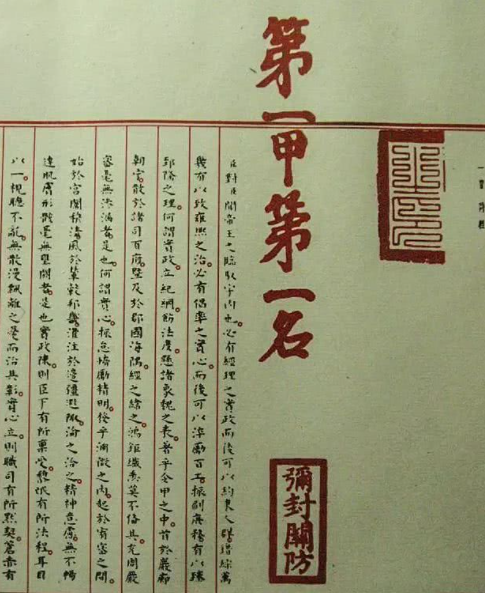 第一甲第一名
彌封關防
臣對臣聞帝王之臨馭宇內也必有經理之實政而後可以約束人群錯綜萬
幾有以致雍熙之治必有倡率之實心而後可以淬勵百工振刷庶務有以臻
郅隆之理何謂實政立紀綱飭法度懸諸象魏之表著乎令甲之中首於嚴廊
朝寧散於諸司百府暨及於郡國海隅經之緯之鴻鉅纖悉莫不備具充周嚴
密毫無滲漏者是也何謂實心振怠惰勵精明發乎淵微之內起於宥密之間
始於宮闈穆清風於輦轂邦畿灌注於邊疆遐陬淪之洽之精神意慮無不暢
達肌膚形骸毫無壅閼者是也實政陳則臣下有所稟受黎氓有所法程耳目
以一視聽不亂無散漫飄離之憂而治具彰實心立則職司有所默契蒼赤有